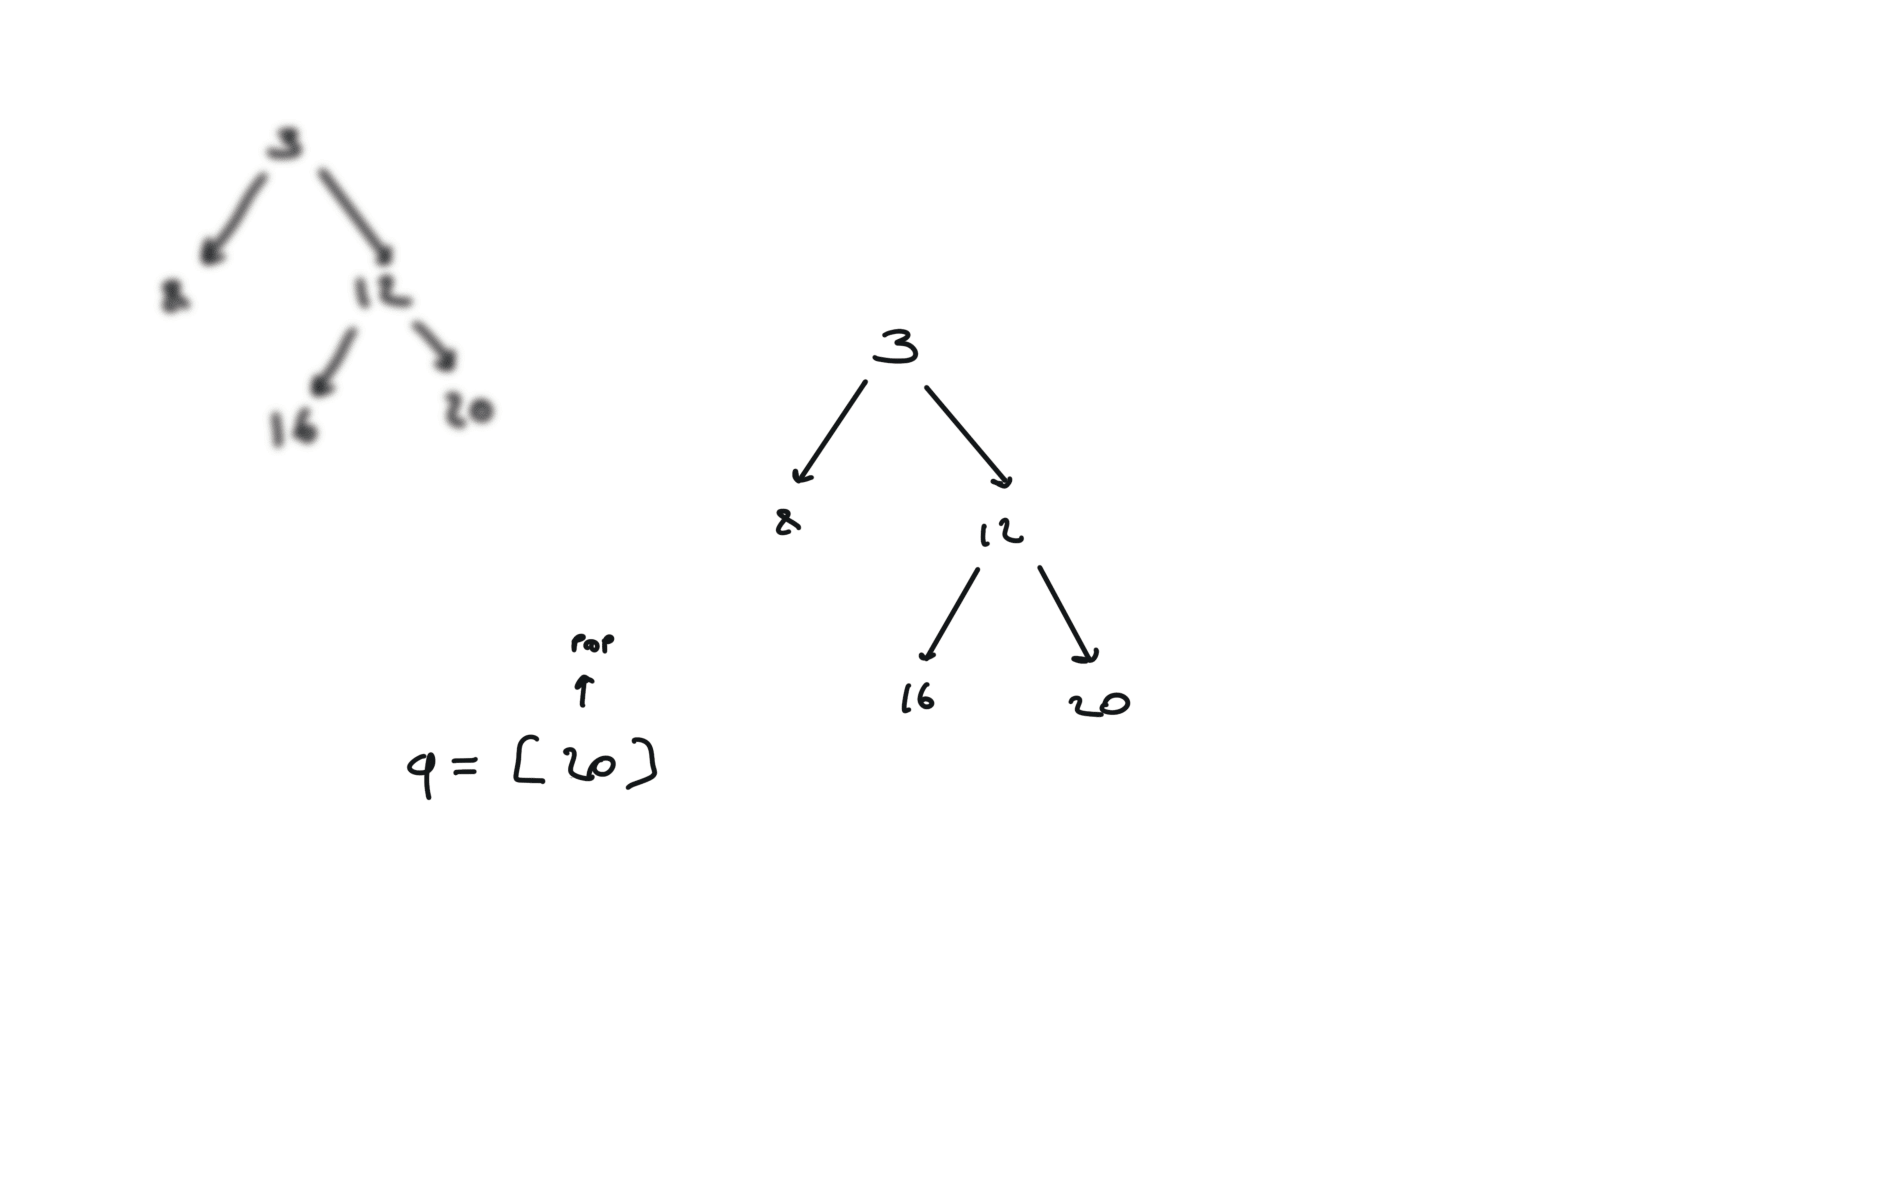 3
8 12
16 20
3
8 12
16 20
pop
q = [20]